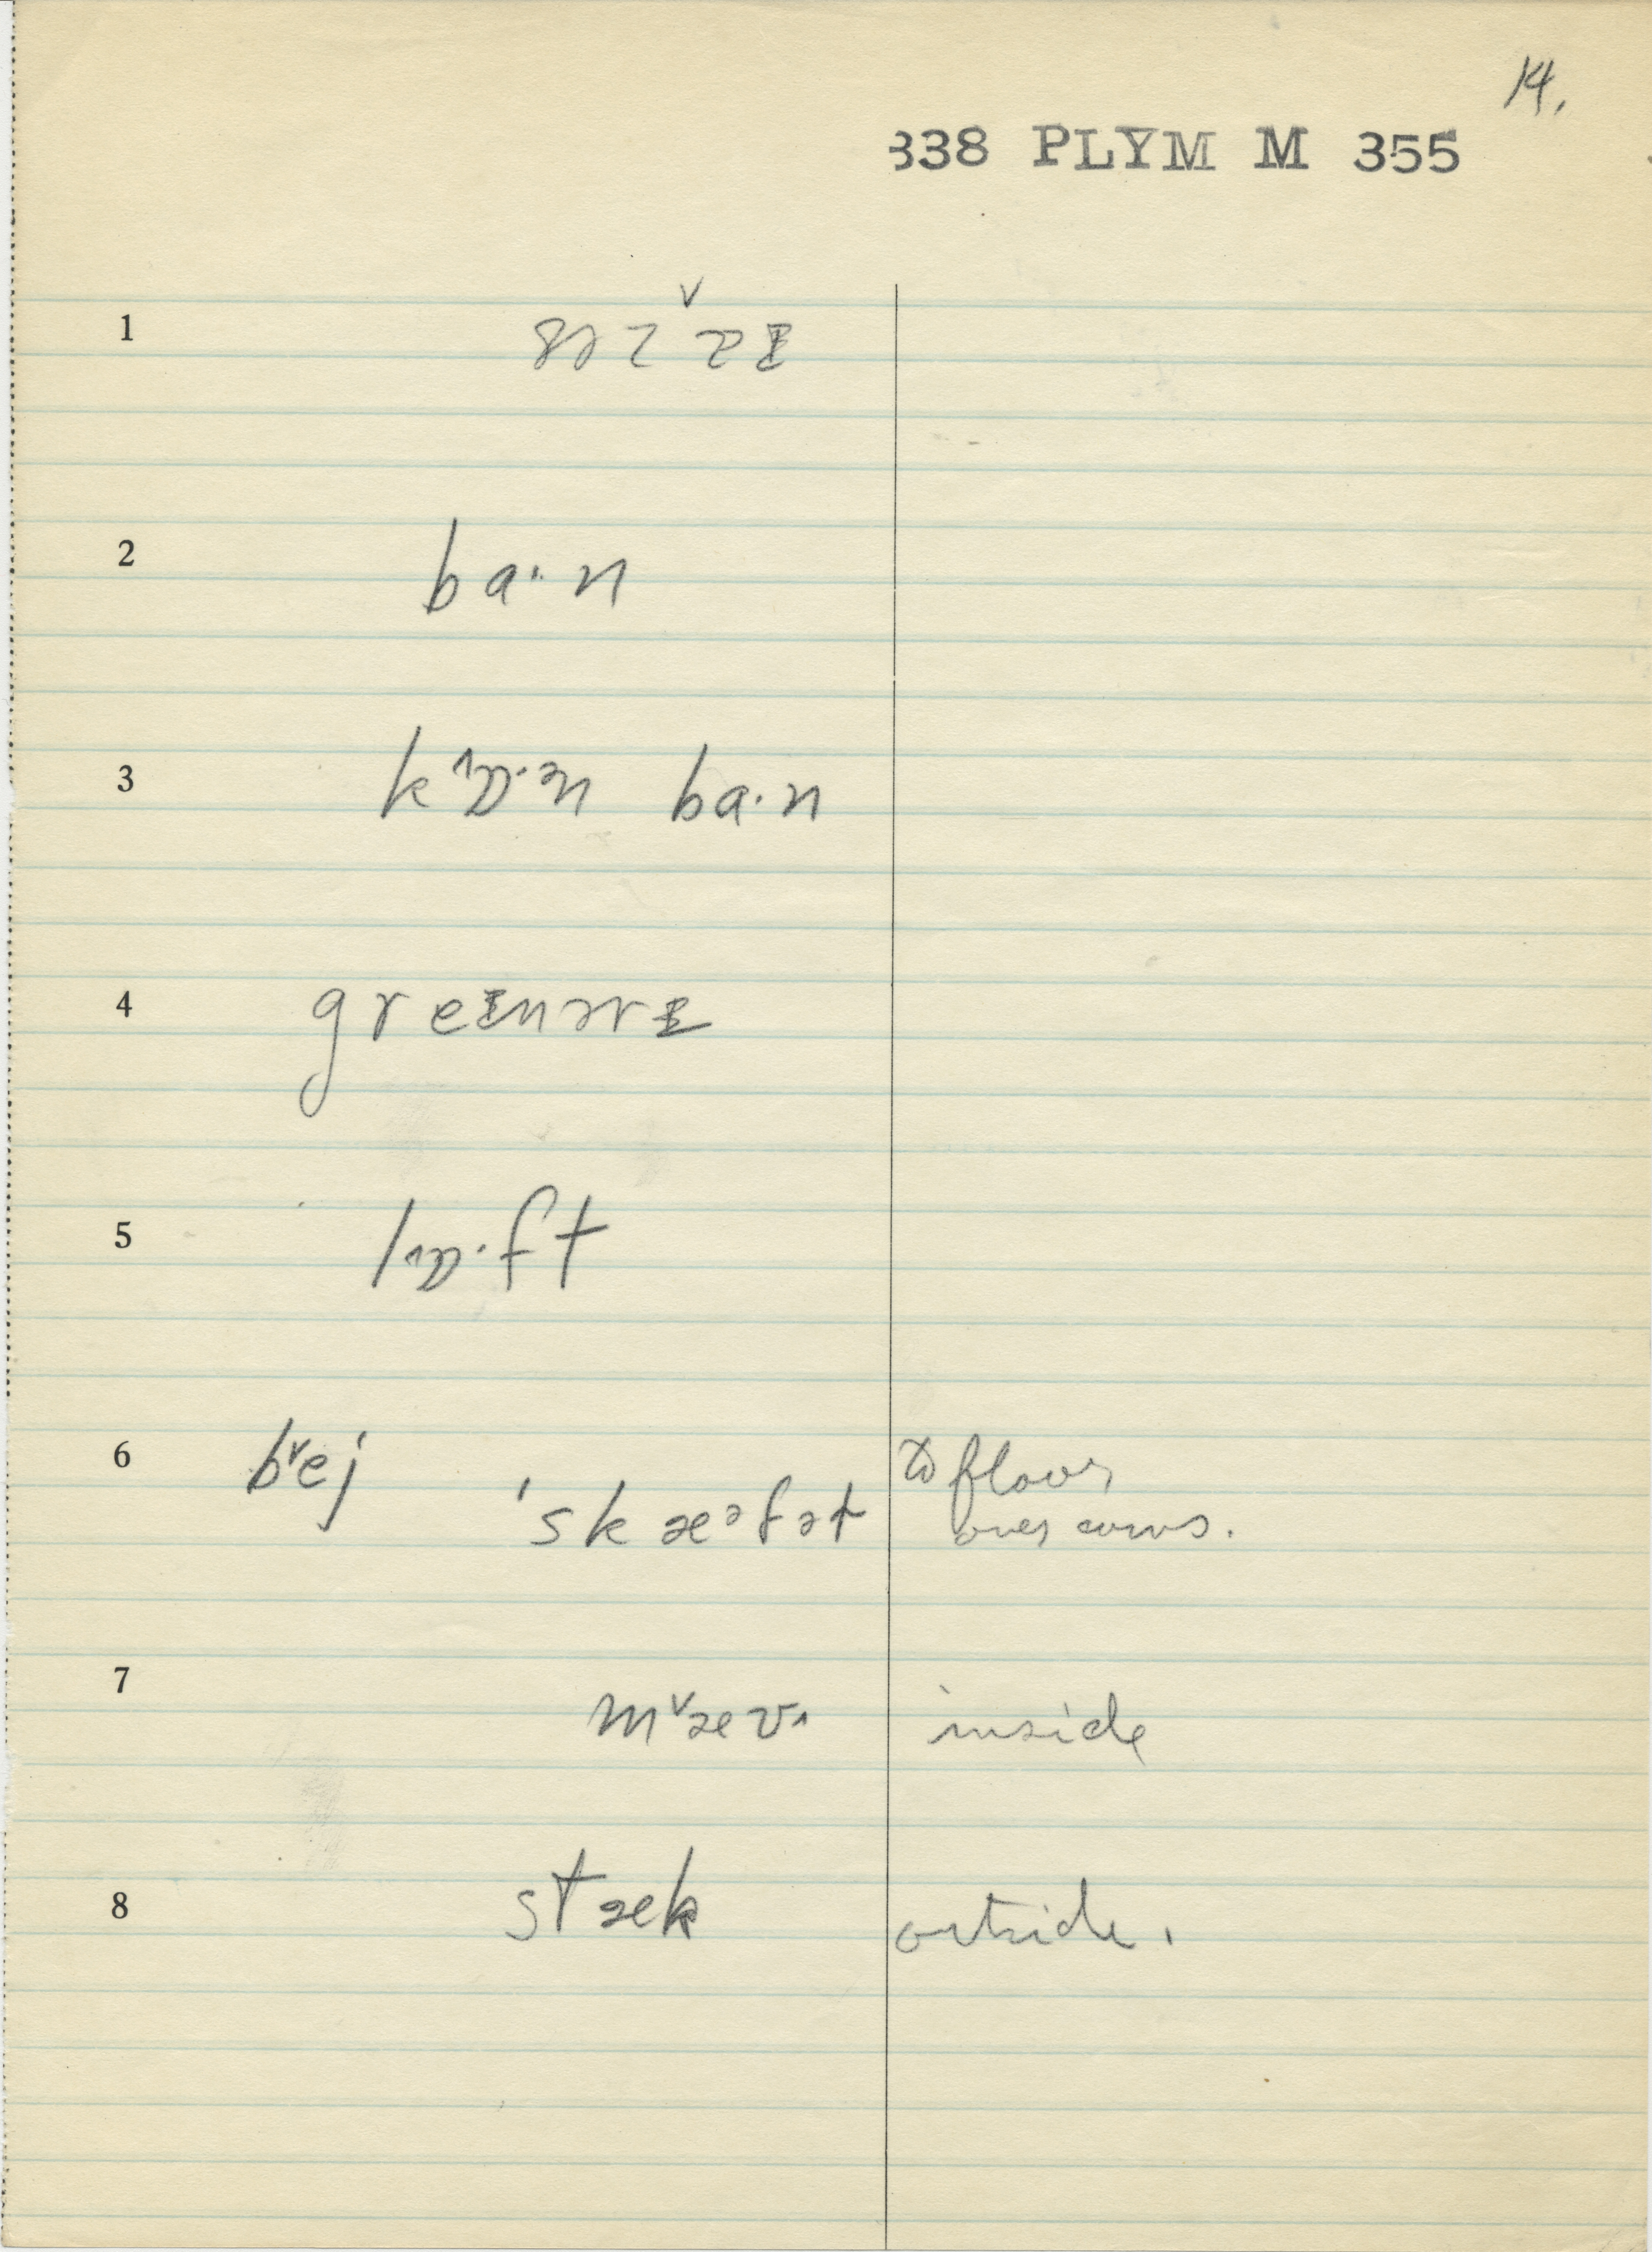 14.
338 PLYM M 355
1
2 ba·n
3 k^ɒ·ᵊn ba·n
4 greɪnərɪ
5 l^ɒ·ft
6 bᵛej to floor
'skæᵊfət over cows.
7 mᵛæv inside
8 stæk outside.